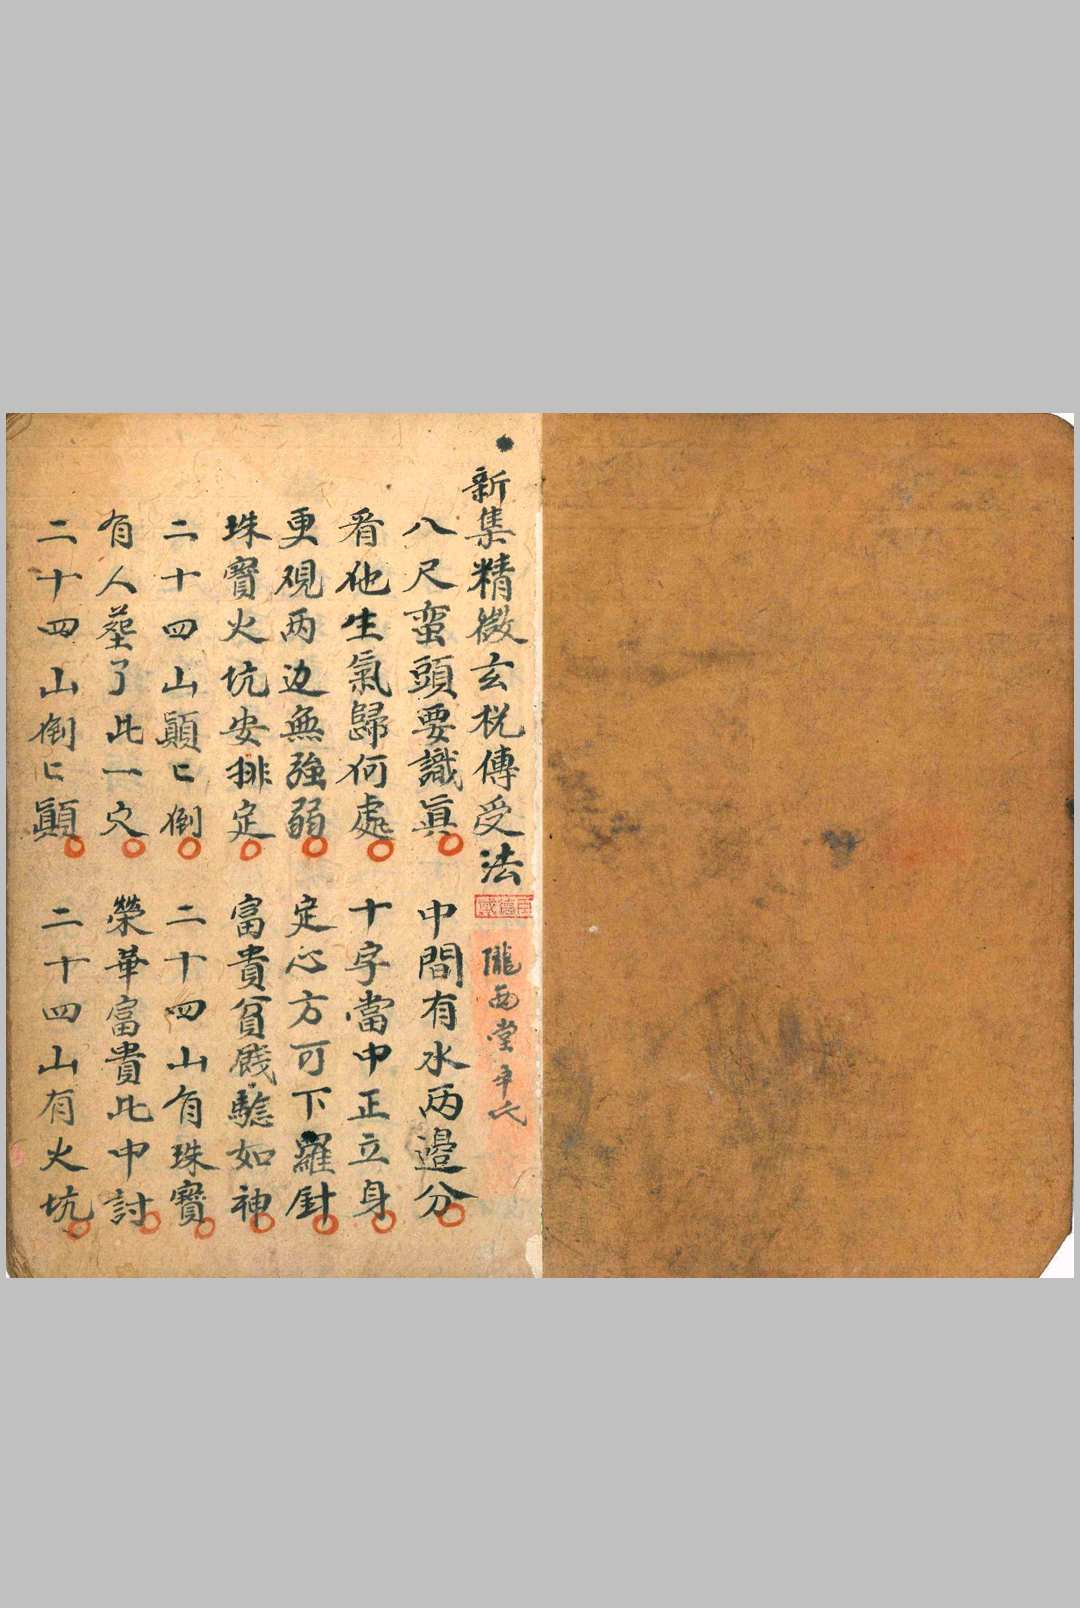 新集精微玄杬傳受法 隴西堂
八尺蛮頭要識眞 中間有水两邉分
看他生氣歸何處 十字當中正立身
更覌两边無強弱 定心方可下羅針
珠寳火坑安排定 富貴貧賎驗如神
二十四山顚匕倒 二十四山有珠寳
有人塟了此一穴 榮華富貴此中討
二十四山倒匕顚 二十四山有火坑